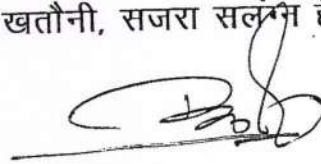 खतौनी, सजरा सलंग्न ह